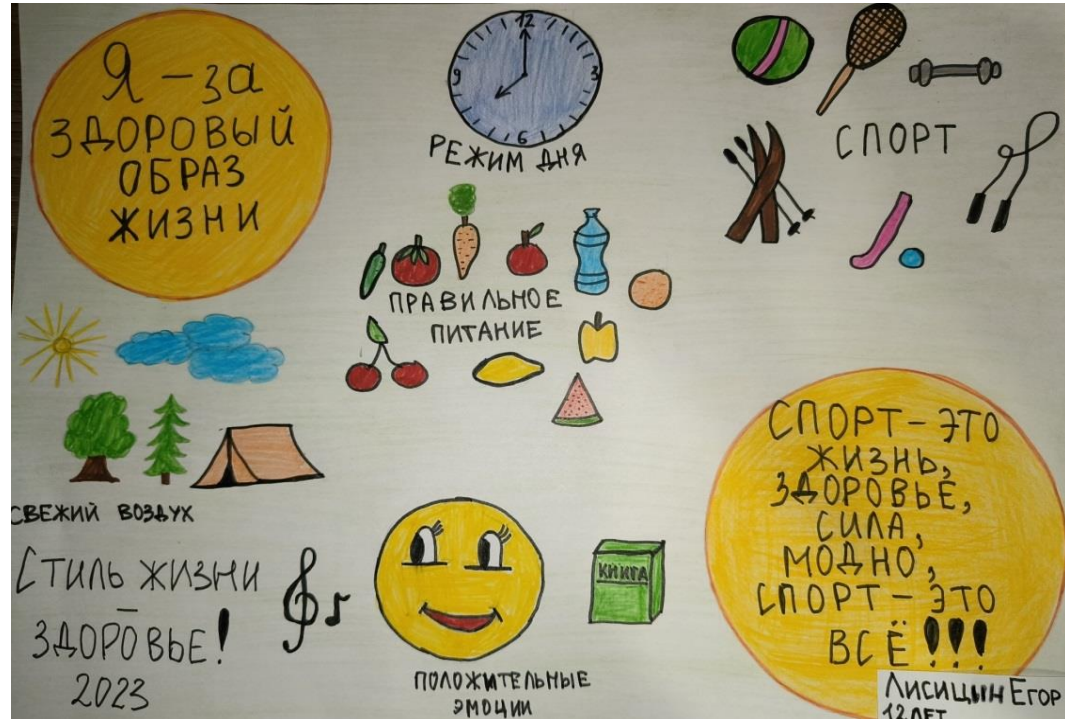 Я – за
ЗДОРОВЫЙ
ОБРАЗ
ЖИЗНИ
12
9
3
6
РЕЖИМ ДНЯ
СПОРТ
ПРАВИЛЬНОЕ
ПИТАНИЕ
СВЕЖИЙ ВОЗДУХ
СТИЛЬ ЖИЗНИ
–
ЗДОРОВЬЕ!
2023
КНИГА
ПОЛОЖИТЕЛЬНЫЕ
ЭМОЦИИ
СПОРТ – ЭТО
ЖИЗНЬ,
ЗДОРОВЬЕ,
СИЛА,
МОДНО,
СПОРТ – ЭТО
ВСЁ!!!
ЛИСИЦЫН ЕГОР
12 ЛЕТ